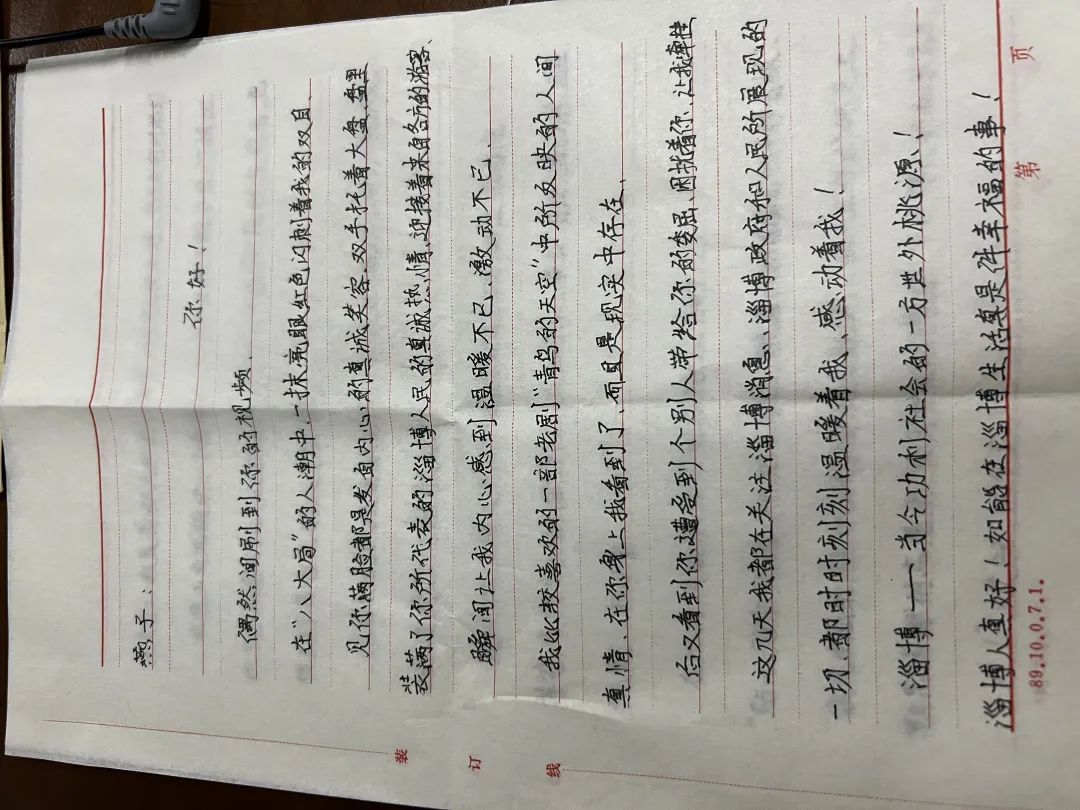 燕子：
你好！
偶然间刷到你的视频、
在“八大局”的人潮中，一抹亮眼红色闪刺着我的双目
见你满脸都是发自内心的真诚笑容、双手托着大盘、盘里
装满了你所代表的淄博人民的真诚热情、迎接着来自各方的游客、
瞬间让我内心感到温暖不已、激动不已、
我比较喜欢的一部老剧“青鸟的天空”中所反映的人间
真情、在你身上我看到了、而且是现实中存在、
后又看到你遭受到个别人带给你的委屈、困扰着你、让我牵挂
这几天我都在关注淄博消息、淄博政府和人民所展现的
一切、都时时刻刻温暖着我、感动着我！
淄博——当今功利社会的一方世外桃源、！
淄博人真好！如能在淄博生活真是件幸福的事！
89.10.0.7.1.
第 页
装 订 线